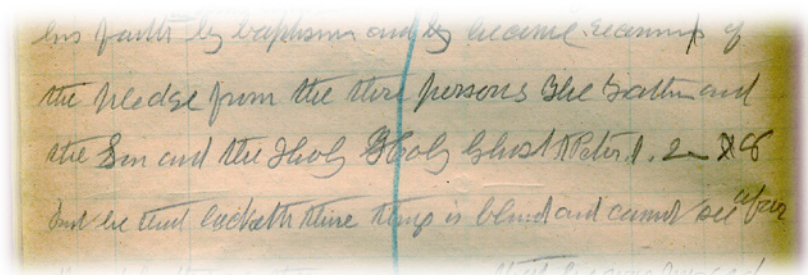 his faith by baptism and by became reciving of
the pledge from the thre persons The Father and
the Son and the Holy Holy Ghost Peter 1. 2 8
but he that lacketh these things is blind and cannot see afar